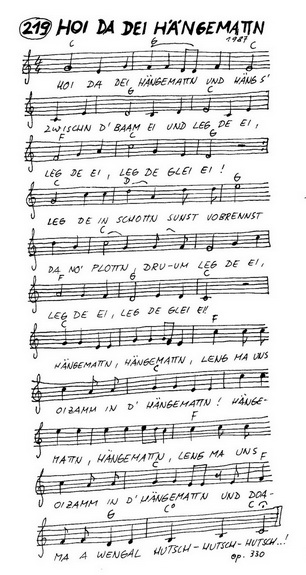 219 HOI DA DEI HÄNGEMATTN
1987
C G C
HOI DA DEI HÄNGEMATTN UND HÄNG S'
G C
ZWISCHN D' BAAM EI UND LEG DE EI,
F C G
LEG DE EI, LEG DE GLEI EI!
C D G
LEG DE IN SCHOTTN SUNST VOBRENNST
C C
DA NO' PLOTTN, DRU-UM LEG DE EI,
F G C
LEG DE EI, LEG DE GLEI EI!
C F
HÄNGEMATTN, HÄNGEMATTN, LENG MA UNS
C
OIZAMM IN D' HÄNGEMATTN! HÄNGE-
F
MATTN, HÄNGEMATTN, LENG MA UNS
C F
OIZAMM IN D'HÄNGEMATTN UND DOA-
G C° C
MA A WENGAL HUTSCH-HUTSCH-HUTSCH..!
op. 330